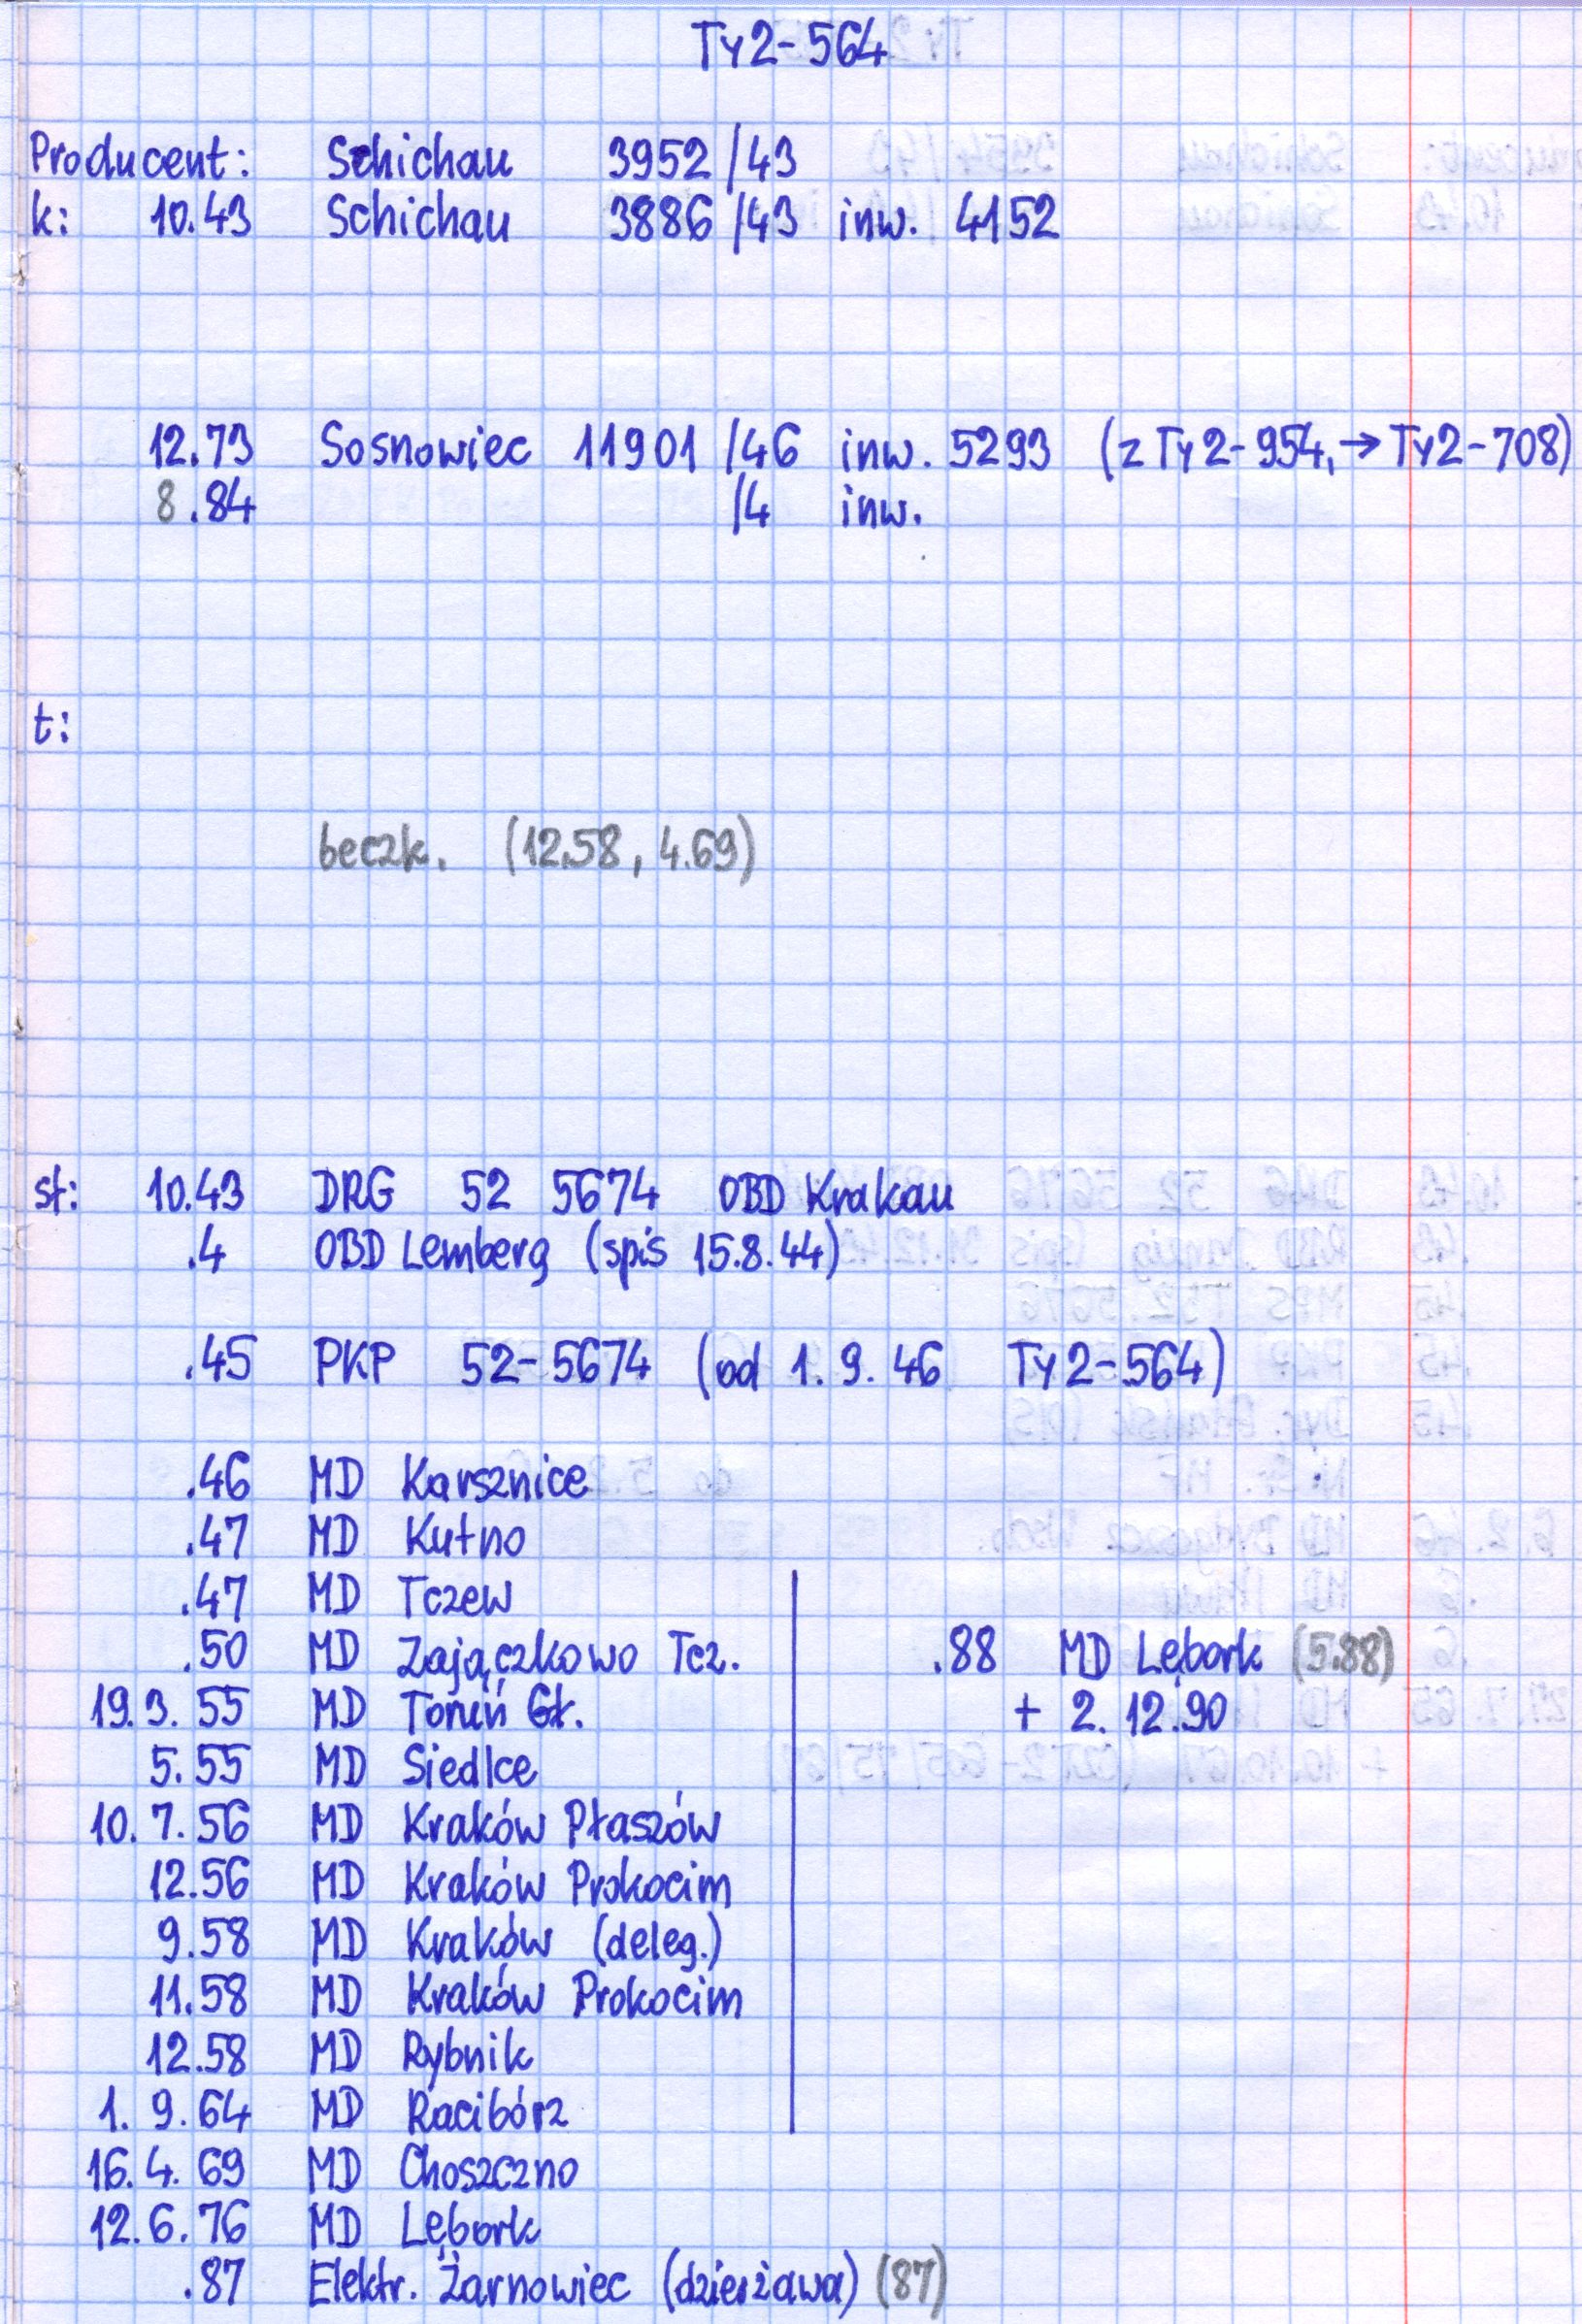 Ty2-564
Producent: Schichau 3952/43
k: 10.43 Schichau 3886/43 inw. 4152
12.73 Sosnowiec 11901/46 inw. 5293 (z Ty2-954, → Ty2-708)
8.84 /4 inw.
t:
beczk. (12.58, 4.69)
st: 10.43 DRG 52 5674 OBD Krakau
.4 OBD Lemberg (spis 15.8.44)
.45 PKP 52-5674 (od 1.9.46 Ty2-564)
.46 MD Karsznice
.47 MD Kutno
.47 MD Tczew
.50 MD Zajączkowo Tcz.
19.3.55 MD Toruń Gł.
5.55 MD Siedlce
10.7.56 MD Kraków Płaszów
12.56 MD Kraków Prokocim
9.58 MD Kraków (deleg.)
11.58 MD Kraków Prokocim
12.58 MD Rybnik
1.9.64 MD Racibórz
16.4.69 MD Choszczno
12.6.76 MD Lębork
.87 Elektr. Żarnowiec (dzierżawa) (87)
.88 MD Lębork (5.88)
+ 2.12.90